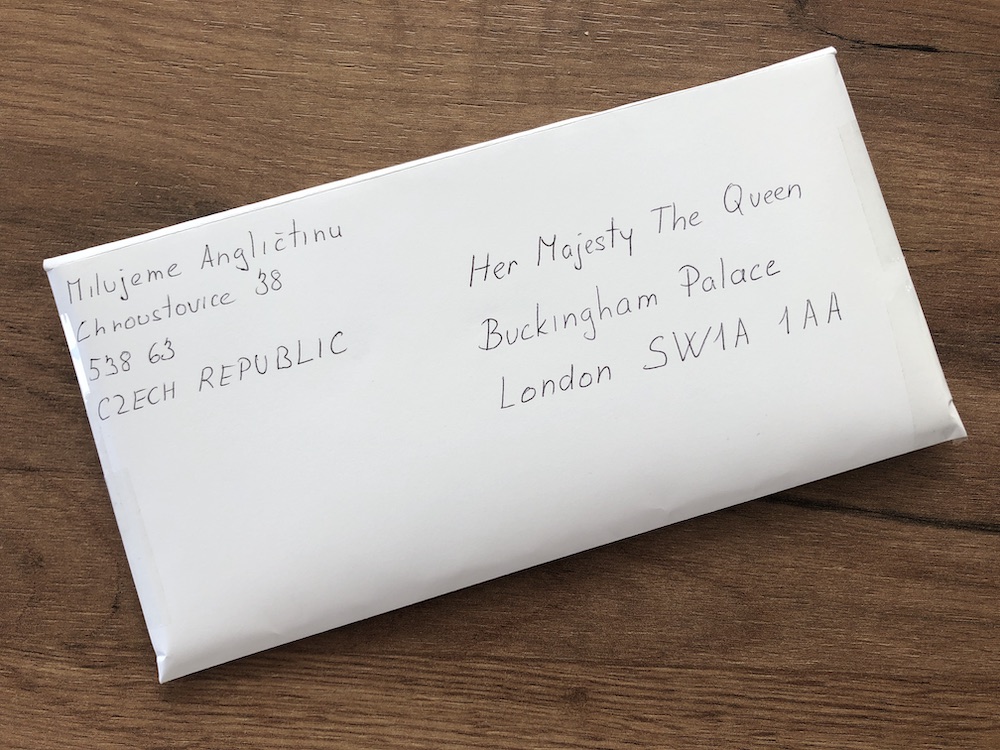 Milujeme Angličtinu
Chroustovice 38
538 63
CZECH REPUBLIC
Her Majesty The Queen
Buckingham Palace
London SW1A 1AA